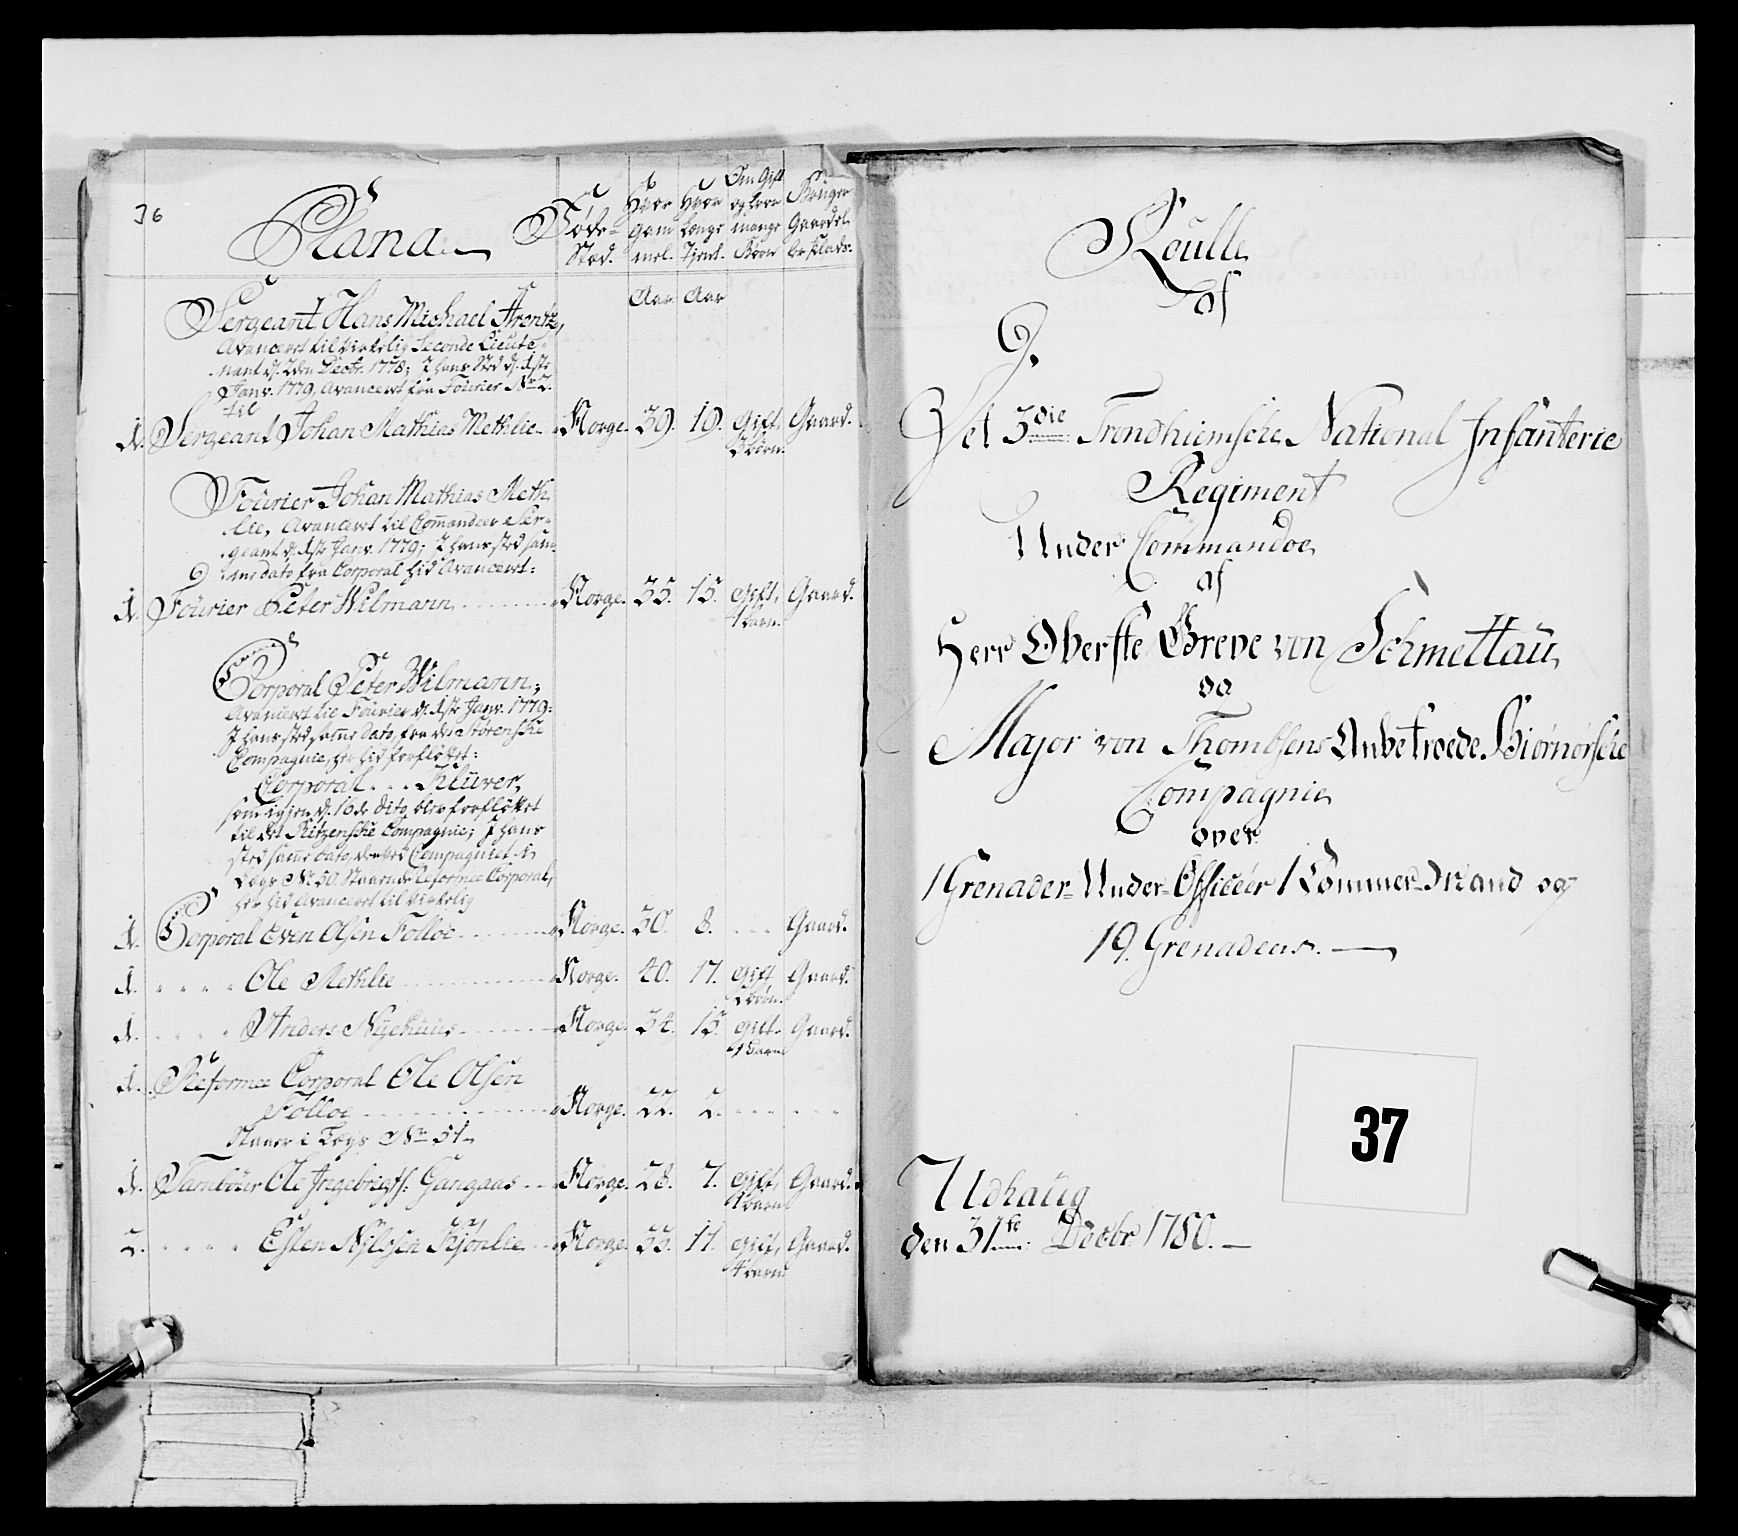 36
Plana
Føde-
Sted.
Hvor
Gam
mel.
Hvor
Længe
Tjent.
Om Gift
og hvor
mange
Børn
Bruger
Gaard el-
ler Plads.
Aar Aar
Sergeant Hans Michael Arentz,
Avanceret til virkelig Seconde Lieute-
nant d. 2den Decbr. 1778; I hans Sted d. 1ste
Janv. 1779, Avanceret fra Fourier No 2.
til
1. Sergeant Johan Mathias Methlie Norge. 39. 19. Gift, Gaard.
Børn.
Fourier Johan Mathias Meth
lie, Avanceret til Commandeer Ser-
geant d. 1ste Janv. 1779; I hans sted sam-
me dato fra Corporal hid Avanceret:
1. Fourier Peter Wilmann Norge. 35. 15. Gift, Gaard.
1 barn.
Corporal Peter Wilmann,
Avanceret til Fourier d. 1ste Janv. 1779:
I hans sted samme Dato, fra det Størenske
Compagnie, her hid forfløttet:
Corporal Klüwer,
som igjen d. 16de dito blev forfløttet
til det Ritzenske Compagnie; I hans
sted samme dato, den ved Compagniet i
Lægs No 50. Staaende Reformee Corporal,
her hid Avanceret til virkelig
1. Corporal Even Olsen Folloe Norge. 30. 8. Gaard.
1. Ole Methlie Norge. 40. 17. Gift Gaard.
2 børn.
1. Anders Nyehuus Norge. 34. 15. Gift. Gaard.
1 Barn
1. Reformee Corporal Ole Olsen
Folloe Norge. 22. 2.
Staaer i Lægs No 51
1. Tambour Ole Ingebrigts: Gangaas Norge. 28. 7. Gift, Gaard.
1 barn
2. Esten Nilsen Kjønlie Norge. 35. 11. Gift, Gaard.
1 barn
Roulle
af
Det 3die Trondhiemske National Infanterie
Regiment
Under Commandoe
af
Herr Oberste Greve von Schmettau,
og
Major von Thomsens Anbetroede Biørnørske
Compagnie
over
1 Grenader Under-Officeer 1 Tømmer-Mand og
19. Grenadeers.
37
Udhaug
den 31te Decbr 1780.